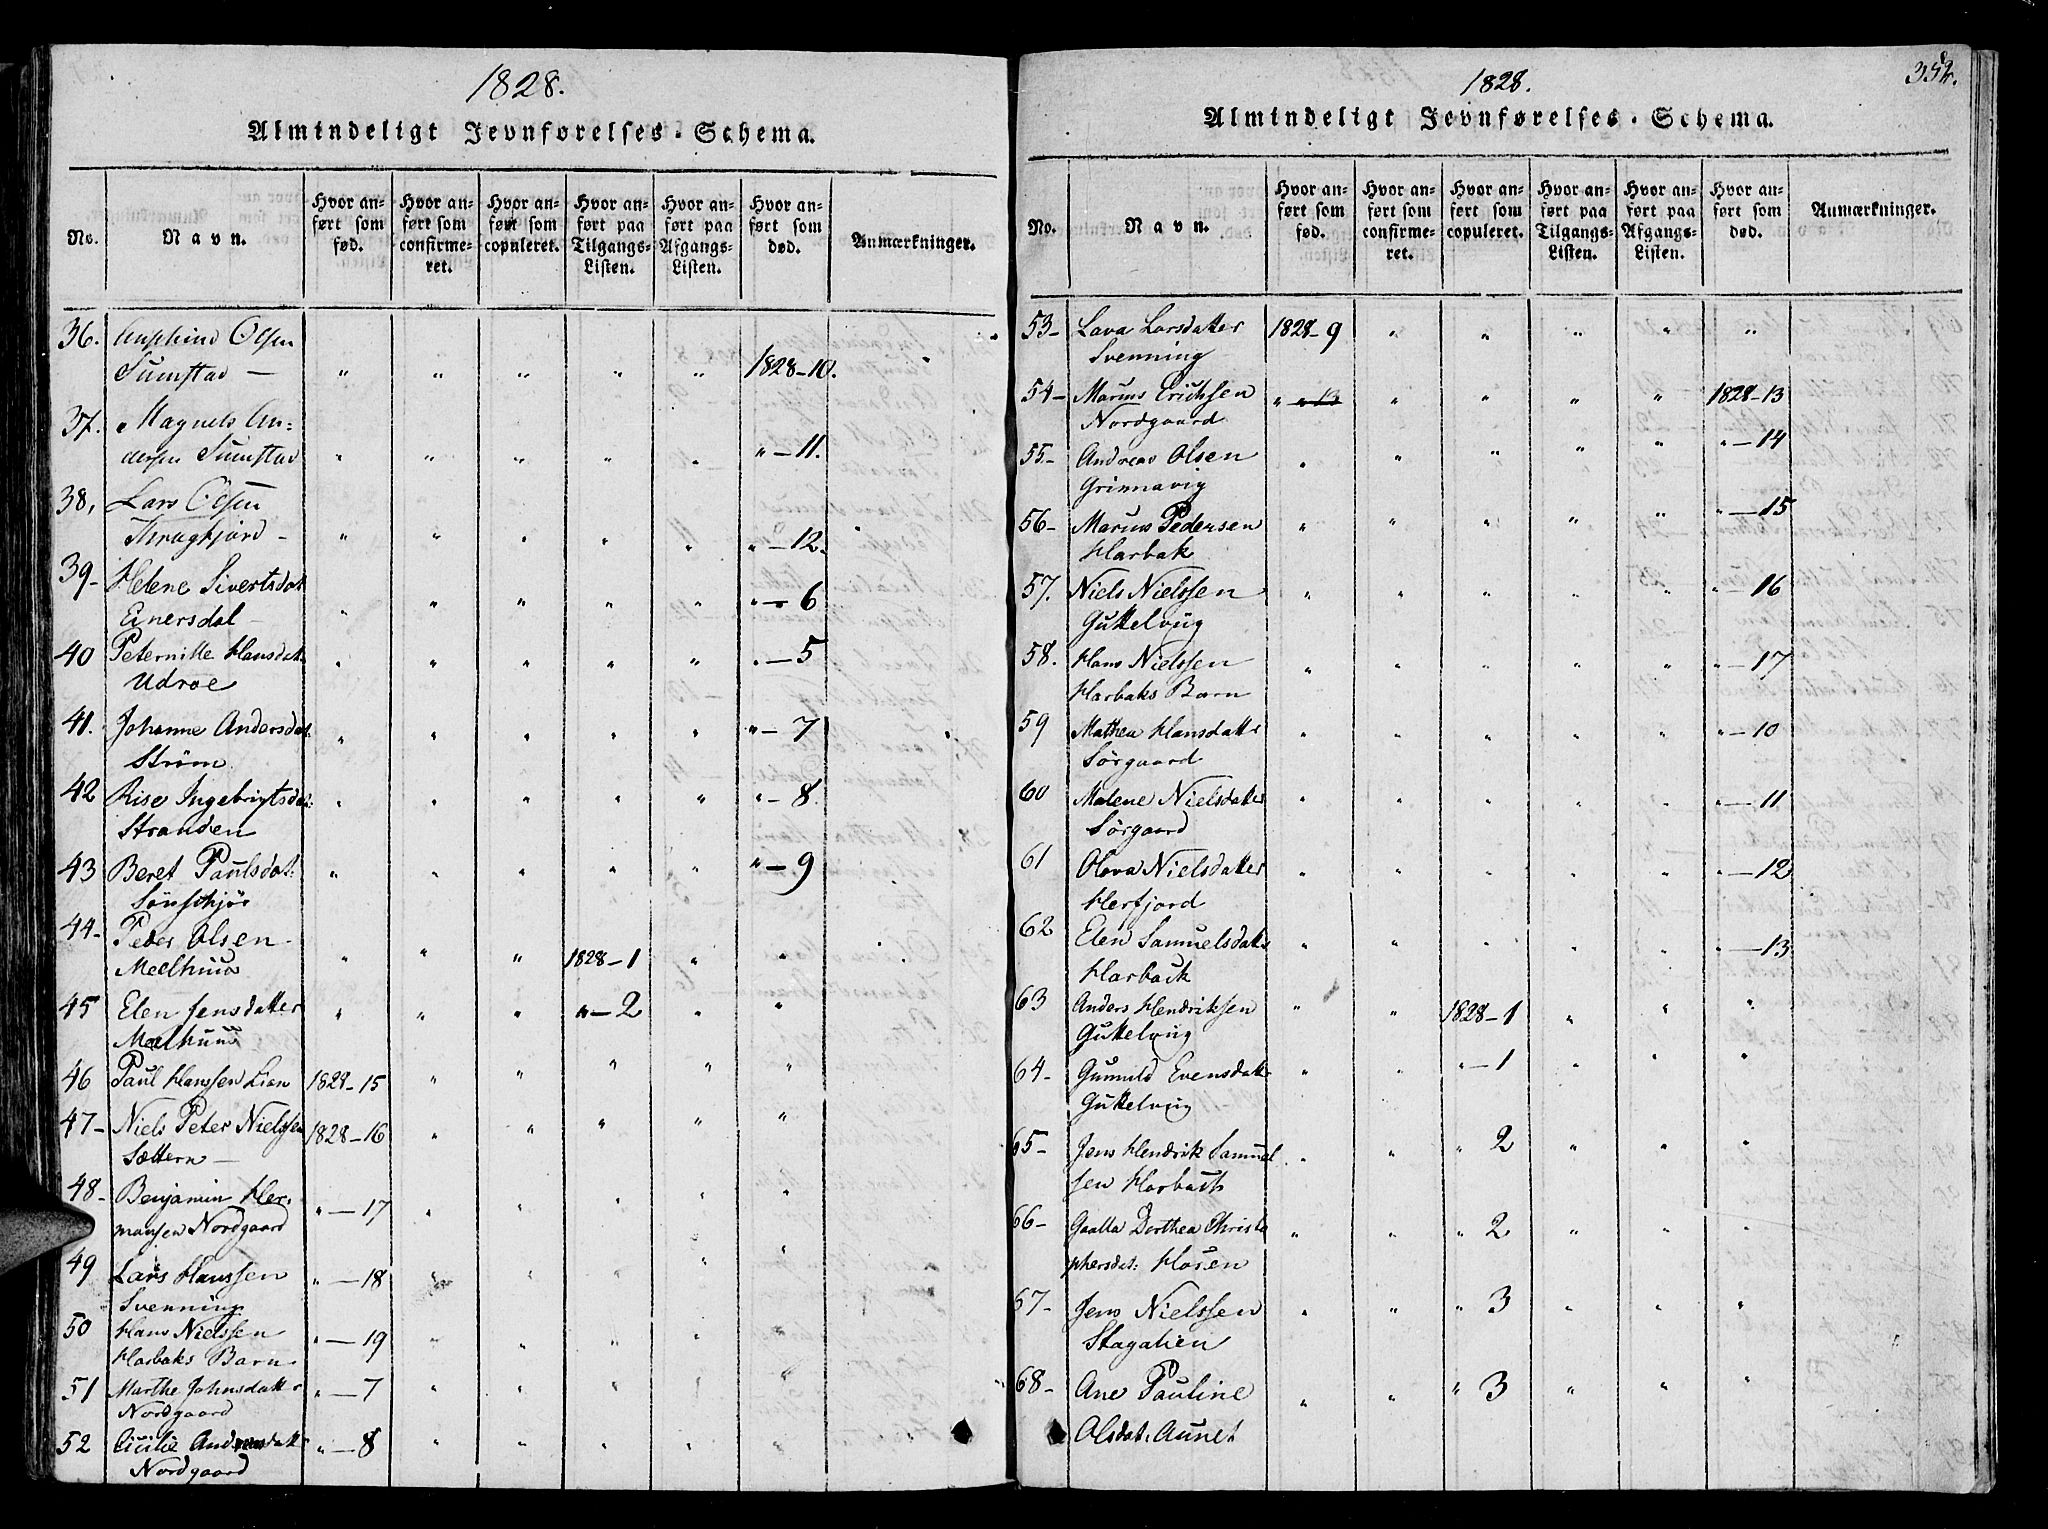 1828.
Almindeligt Jevnførelses-Schema.
No.
Navn.
Hvor an-
ført som
fød.
Hvor an-
ført som
confirme-
ret.
Hvor an-
ført som
copuleret.
Hvor an-
ført paa
Tilgangs-
Listen.
Hvor an-
ført paa
Afgangs-
Listen.
Hvor an-
ført som
død.
Anmærkninger.
36. Olsen
Sumstad — " " " " " 1828-10.
37. Magnels An-
dersen Sumstad " " " " " "—11.
38, Lars Olsen
— " " " " " "—12.
39- Helene Sivertsdat
Einersdal — " " " " " "—6
40 Peternille Hansdat. " " " " " "—5
Udroe
41. Johanne Andersdat. " " " " " "—7
Strøm
42 Rise Ingebrigtsdat: " " " " " "—8.
Stranden
43 Beret Paulsdat: " " " " " "—9

44- Peder Olsen
Meelhuus " " " 1828-1 " "
45 Elen Jensdatter " " " "—2 " "
Meelhuus
46 Paul Hanssen Lien 1828-15 " " " " "
47- Niels Peter Nielssen 1828-16 " " " " "
Sættern —
48- Benjamin Her-
mansen Nordgaard "—17 " " " " "
49 Lars Hanssen "—18 " " " " "
Svenning
50 Hans Nielssen "—19 " " " " "
Harbaks Barn
51 Marthe Johnsdatter "—7 " " " " "
Nordgaard
52 Cicilie Andreasdatt: "—8 " " " " "
Nordgaard
352.
1828.
Almindeligt Jevnførelses-Schema.
No.
Navn.
Hvor an-
ført som
fød.
Hvor an-
ført som
confirme-
ret.
Hvor an-
ført som
copuleret.
Hvor an-
ført paa
Tilgangs-
Listen.
Hvor an-
ført paa
Afgangs-
Listen.
Hvor an-
ført som
død.
Anmærkninger.
53- Lava Larsdatter 1828-9 " " " " "
Svenning
54- Marius Erichsen " "13 " " " " 1828-13
Nordgaard
55- Andreas Olsen " " " " " "—14
Grinnavig
56- Marius Pedersen " " " " " "—15
Harbak
57. Niels Nielssen " " " " " "—16
Guttelvig
58. Hans Nielssen " " " " " "—17
Harbaks Barn
59 Mathea Hansdatte " " " " " "—10
Sörgaard
60 Malene Nielsdatter " " " " " "—11
Sörgaard
61 Olava Nielsdatter " " " " " "—12
Herfjord
62 Elen Samuelsdatte " " " " " "—13
Harback
63 Anders Hendriksen " " 1828-1 " " "
Guttelvig
64- Gunnild Evensdatt: " " "—1 " " "
Guttelvig
65- Jens Hendrik Samuel " " " 2 " " "
sen Harbach
66- Gaalla Dorthea Christo " " " 2 " " "
phersdat: Hosen
67- Jens Nielssen " " " 3 " " "
Stagalien
68- Ane Pauline " " " 3 " " "
Olsdat: Aunet